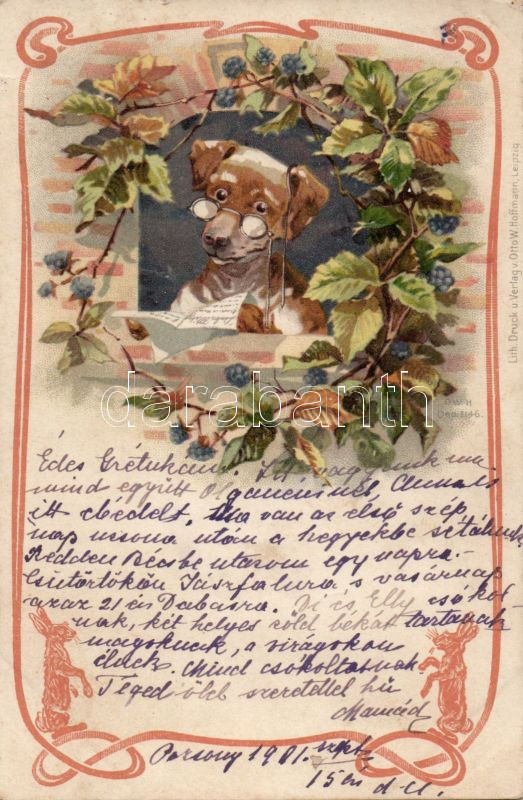 Lith. Druck u. Verlag v. Otto W. Hoffmann, Leipzig.
O.W.H.
darabanth
Édes Grétukám! Itt vagyunk ma
mind együtt
itt ebédelt. Ma van az első szép
nap uzsona után a hegyekbe sétálunk
Kedden Bécsbe utazom egy napra.
Csütörtökön Jászfalura s vasárnap
azaz 21 én Dabasra. Di és Elly csókol-
nak, két helyes zöld békát tartanak
maguknak, a virágokon
élnek. Mind csókoltatnak
Téged ölel szeretettel hű
Mamád
Porsony 1901. szept
15 én d.u.